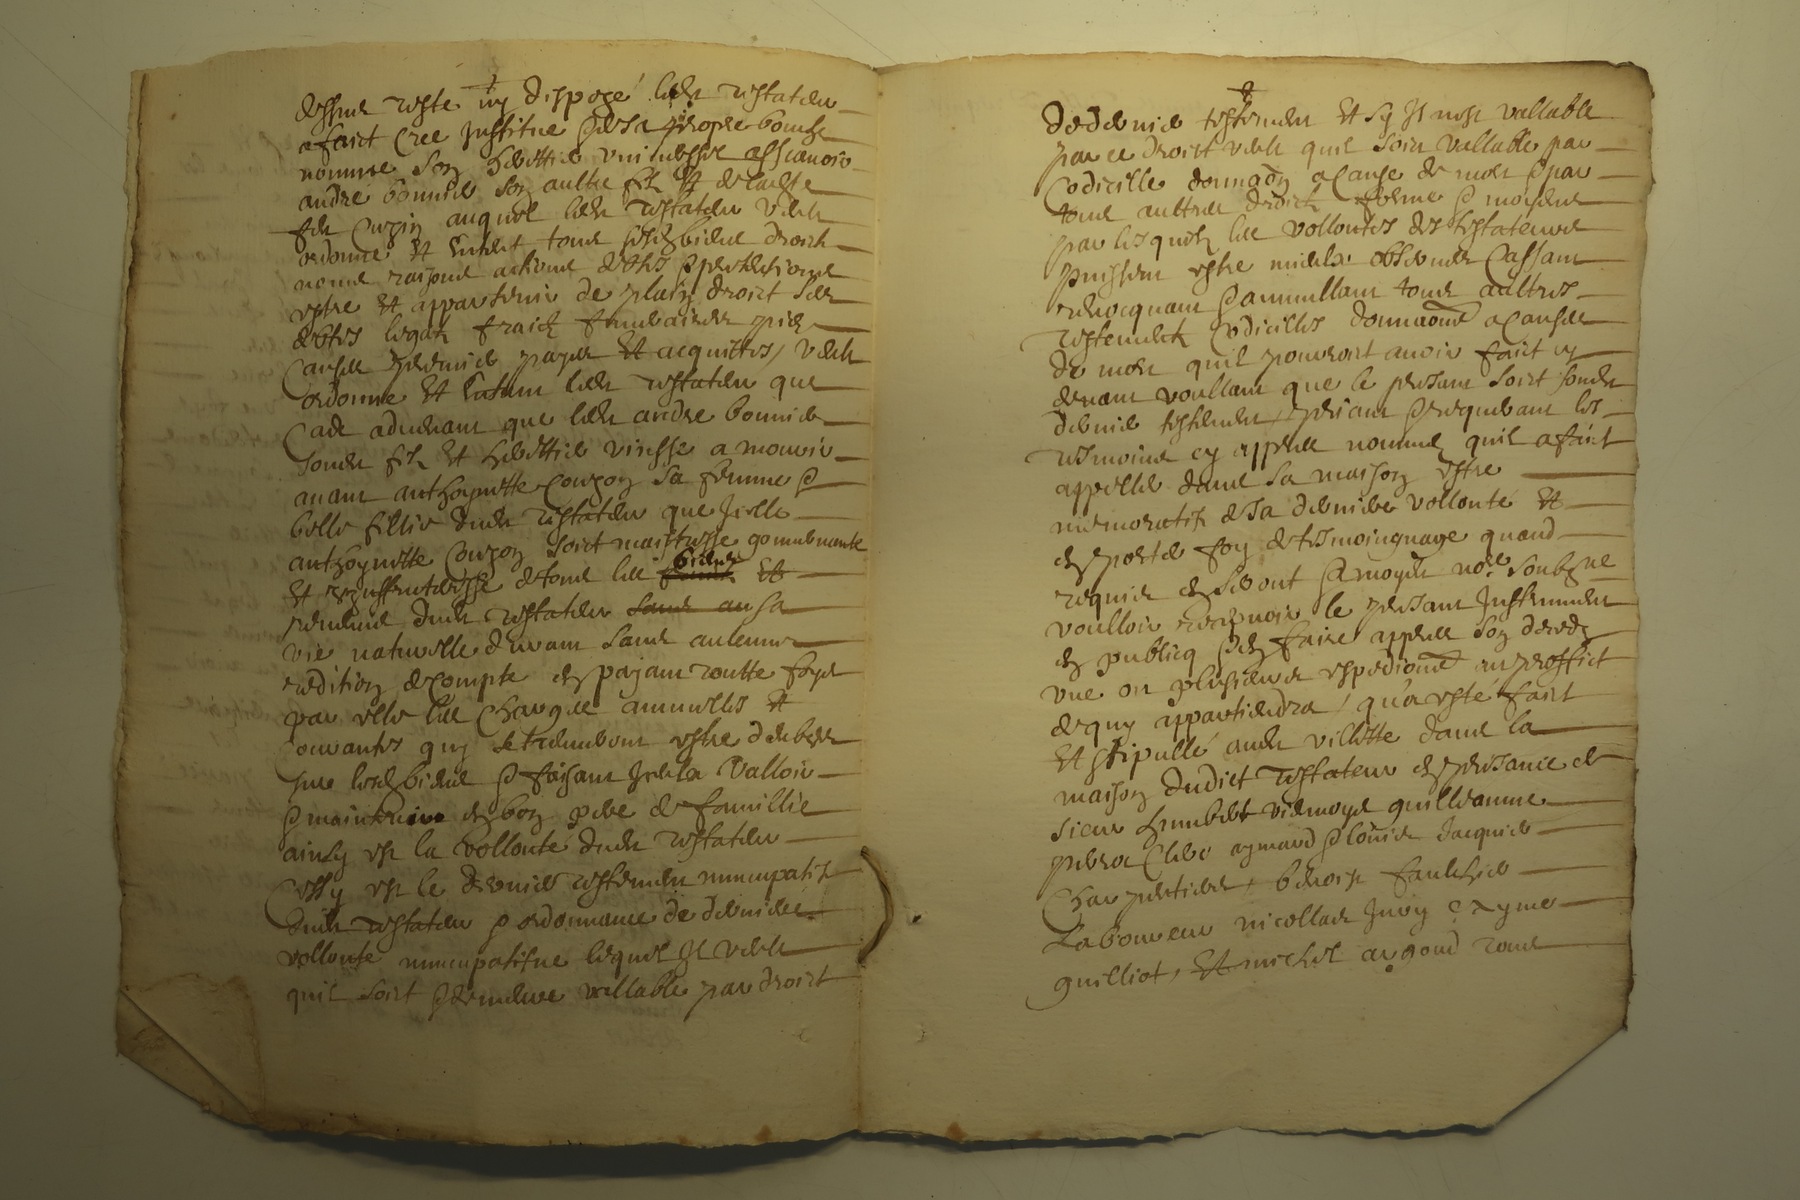 dessus reste my dispozé ledt testateur
a faict cree institue & de sa propre bouche
nomme son heretier universel assavoir
andré bonnier son aultre filz et de lachte
feu Cuzin auquel ledt testateur veult
ordonne et entent tous sesdz biens droictz
noms raisons actions debtes & pretentions
estre et appartenir de plain droict ses
debtes legatz fraictz funeraires pies
Causes premier payes et acquittes / veult
ordonne et entent ledt testateur que
Cas advenant que ledt andre bonnier
sondt filz et heretier vinsse a mourir
avant anthoynette Couzon sa femme &
belle fillie dudt testateur que Icelle
anthoynette Couzon soict maistresse gouvernante
et uzuffruteresse de tous les biens et
revenus dudt testateur sans au sa
vie naturelle durant sans aulcune
redition de compte en payant toutte foys
par elle les charges annuelles et
Courantes quy se treuveront estre deubes
sur lesdz biens & faisant Iceulx valloir
& maintenir en bon pere de famillie
ainsy est la vollonté dudt testateur
Cessy est le dernier testement nuncupatif
dudt testateur & ordonnance de derniere
vollonté nuncupatifve lequel Il veult
quil soict & demeure vallable par droict
de dernier testement et sy Il nest vallable
par ce droict veult quil soict vallable par
Codicille donnaon a cause de mort & par
tous aultres droictz forme & moyens
par lesquelz les vollontes des testateurs
puissent estre mieulx observes Cassant
revocquant & annullant tous aultres
testementz Codicilles donnaons a causes
de mort quil pourroict avoir faict cy
devant voullant que le present soict sondt
dernier testement / priant & requerant les
tesmoins cy appres nommes quil a faict
appeller dans sa maison estre
memoratifz de sa derniere vollonté et
en porter foy & tesmoingnage quand
requis en seront & a moyen nore soubzne
voulloir recepvoir le present Instrument
en publicq & en faire appres son deces
une ou plusieurs expedions au proffict
de quy appartiendra / qua esté faict
et stipullé audt villette dans la
maison dudict testateur en presance de
sieur humbert viennoys guilleaume
pierre Clerc aymard & louis Jacquier
Charpentiers, benoist faulchier
Laboureur nicollas Jury & ayme
guilliot, et michel argoud tous